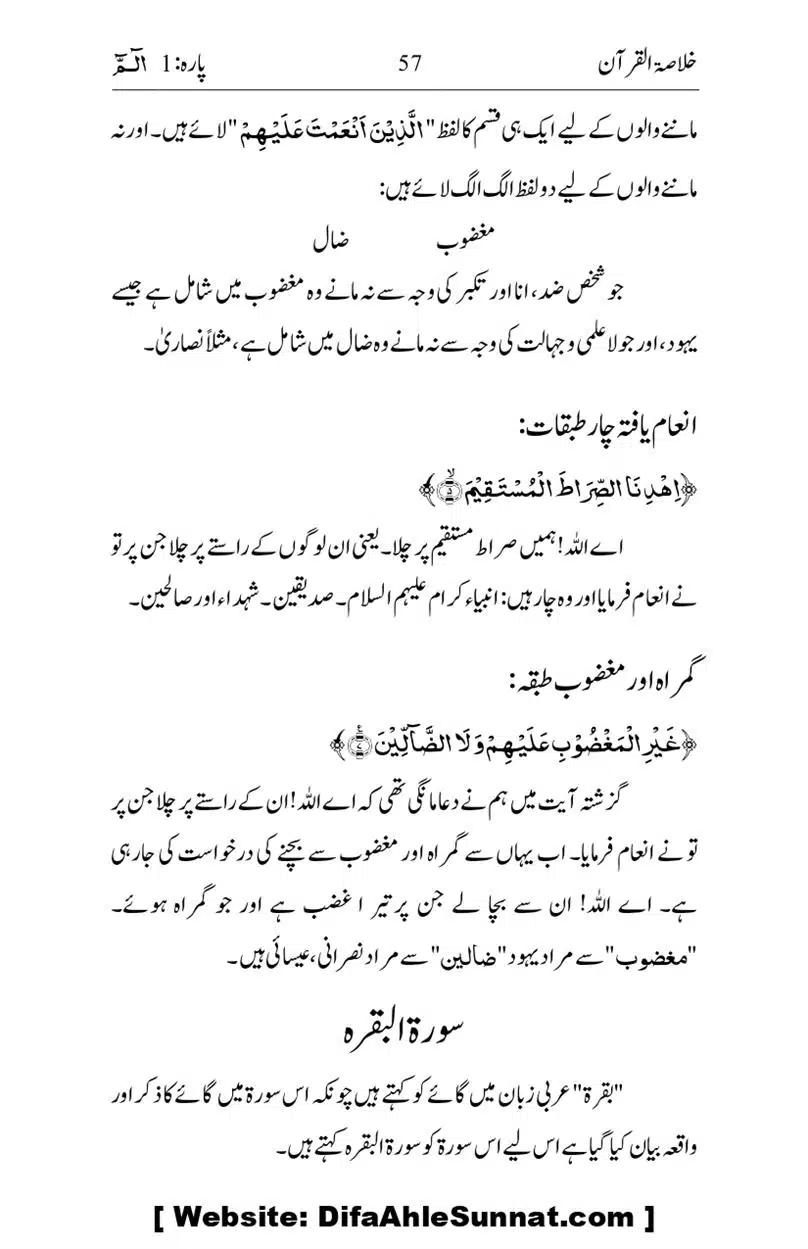 خلاصۃ القرآن 57 پارہ:1 الٓـمّٓ
ماننے والوں کے لیے ایک ہی قسم کا لفظ "الَّذِیْنَ اَنْعَمْتَ عَلَیْھِمْ" لائے ہیں۔ اور نہ
ماننے والوں کے لیے دو لفظ الگ الگ لائے ہیں:
مغضوب ضال
جو شخص ضد، انا اور تکبر کی وجہ سے نہ مانے وہ مغضوب میں شامل ہے جیسے
یہود، اور جو لاعلمی و جہالت کی وجہ سے نہ مانے وہ ضال میں شامل ہے، مثلاً نصاریٰ۔
انعام یافتہ چار طبقات:
﴿اِھْدِنَا الصِّرَاطَ الْمُسْتَقِیْمَ ۙ﴿۵﴾﴾
اے اللہ! ہمیں صراط مستقیم پر چلا۔ یعنی ان لوگوں کے راستے پر چلا جن پر تو
نے انعام فرمایا اور وہ چار ہیں: انبیاء کرام علیہم السلام۔ صدیقین۔ شہداء اور صالحین۔
گمراہ اور مغضوب طبقہ:
﴿غَیْرِ الْمَغْضُوْبِ عَلَیْھِمْ وَ لَا الضَّآلِّیْنَ ٪﴿۷﴾﴾
گزشتہ آیت میں ہم نے دعا مانگی تھی کہ اے اللہ! ان کے راستے پر چلا جن پر
تو نے انعام فرمایا۔ اب یہاں سے گمراہ اور مغضوب سے بچنے کی درخواست کی جارہی
ہے۔ اے اللہ! ان سے بچا لے جن پر تیر ا غضب ہے اور جو گمراہ ہوئے۔
"مغضوب" سے مراد یہود "ضالین" سے مراد نصرانی، عیسائی ہیں۔
سورۃ البقرہ
"بقرۃ" عربی زبان میں گائے کو کہتے ہیں چونکہ اس سورۃ میں گائے کا ذکر اور
واقعہ بیان کیا گیا ہے اس لیے اس سورۃ کو سورۃ البقرہ کہتے ہیں۔
[ Website: DifaAhleSunnat.com ]